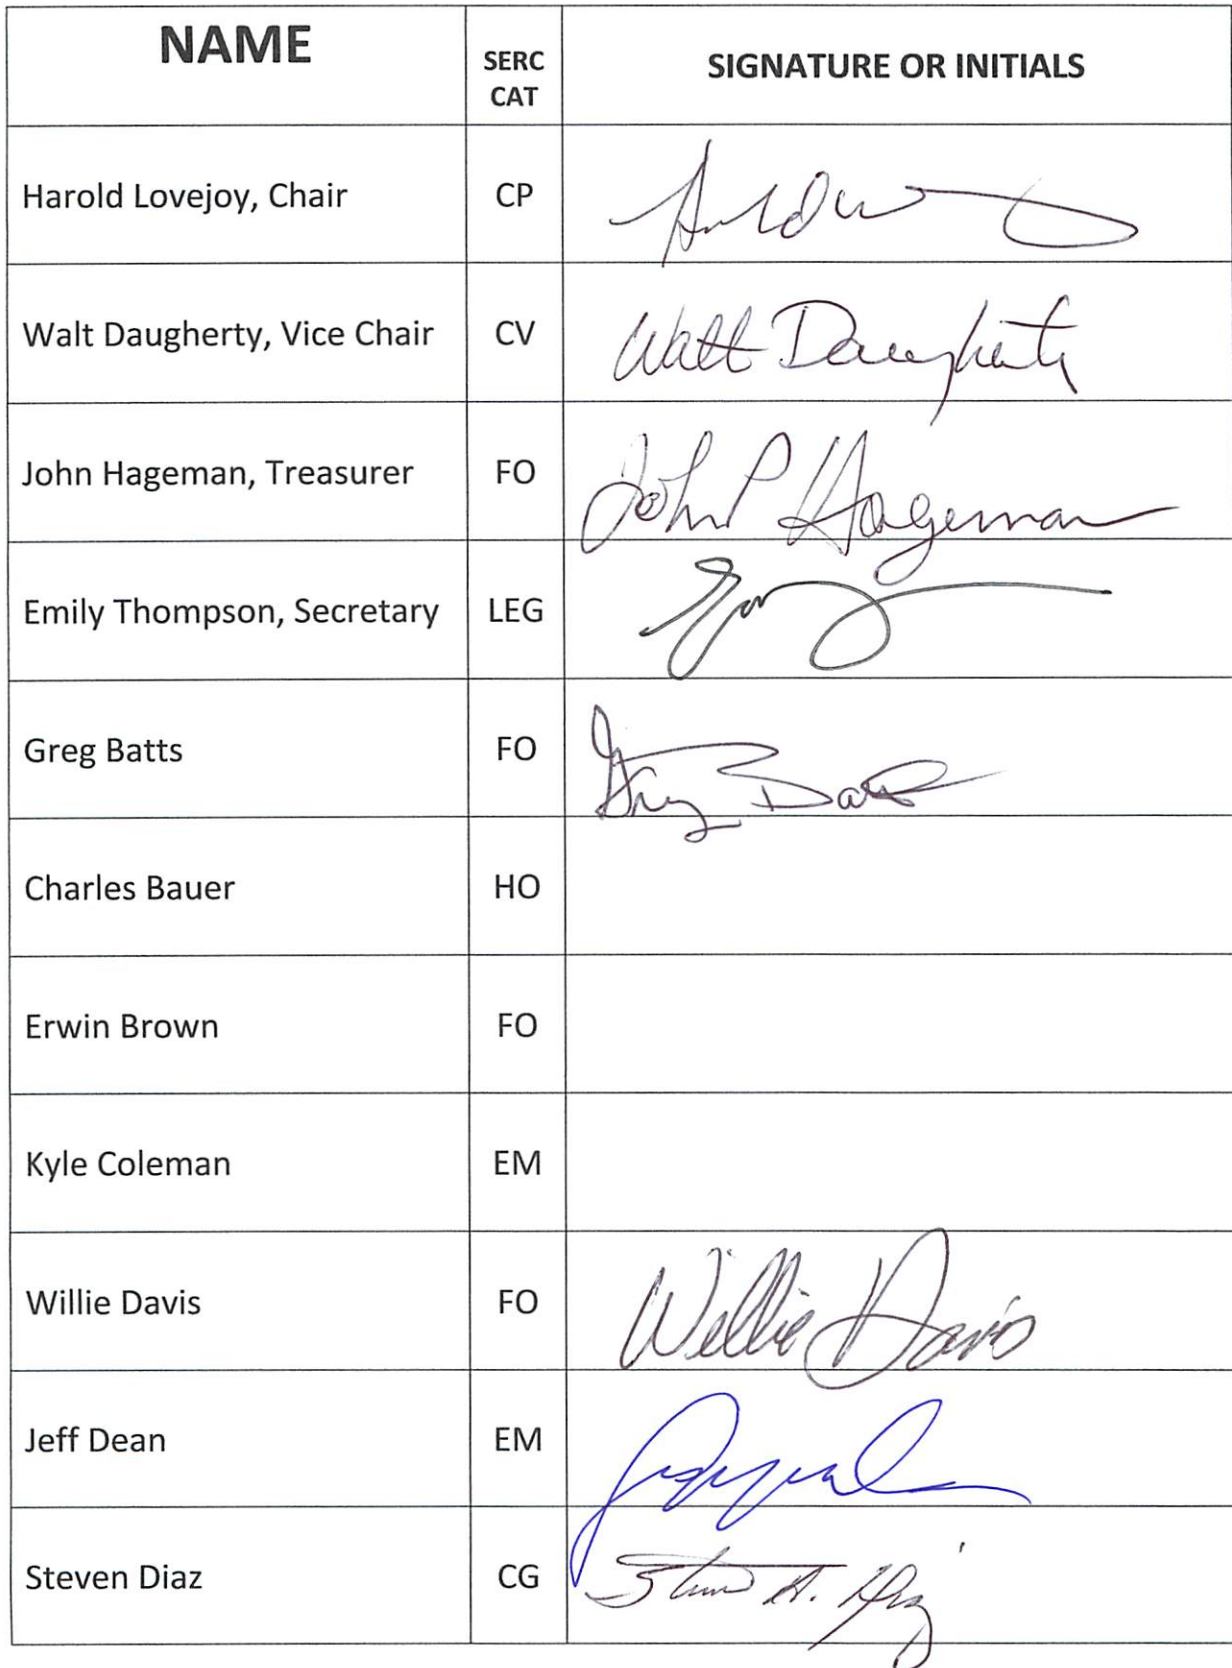 NAME SERC CAT SIGNATURE OR INITIALS
Harold Lovejoy, Chair CP
Walt Daugherty, Vice Chair CV Walt Daugherty
John Hageman, Treasurer FO John P Hageman
Emily Thompson, Secretary LEG
Greg Batts FO Greg Batts
Charles Bauer HO
Erwin Brown FO
Kyle Coleman EM
Willie Davis FO Willie Davis
Jeff Dean EM
Steven Diaz CG Steven A. Diaz